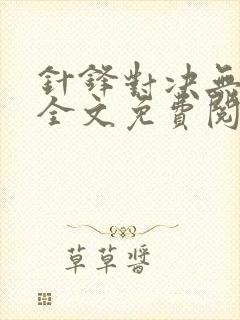 針鋒對決無
全文免費閱
草草醬